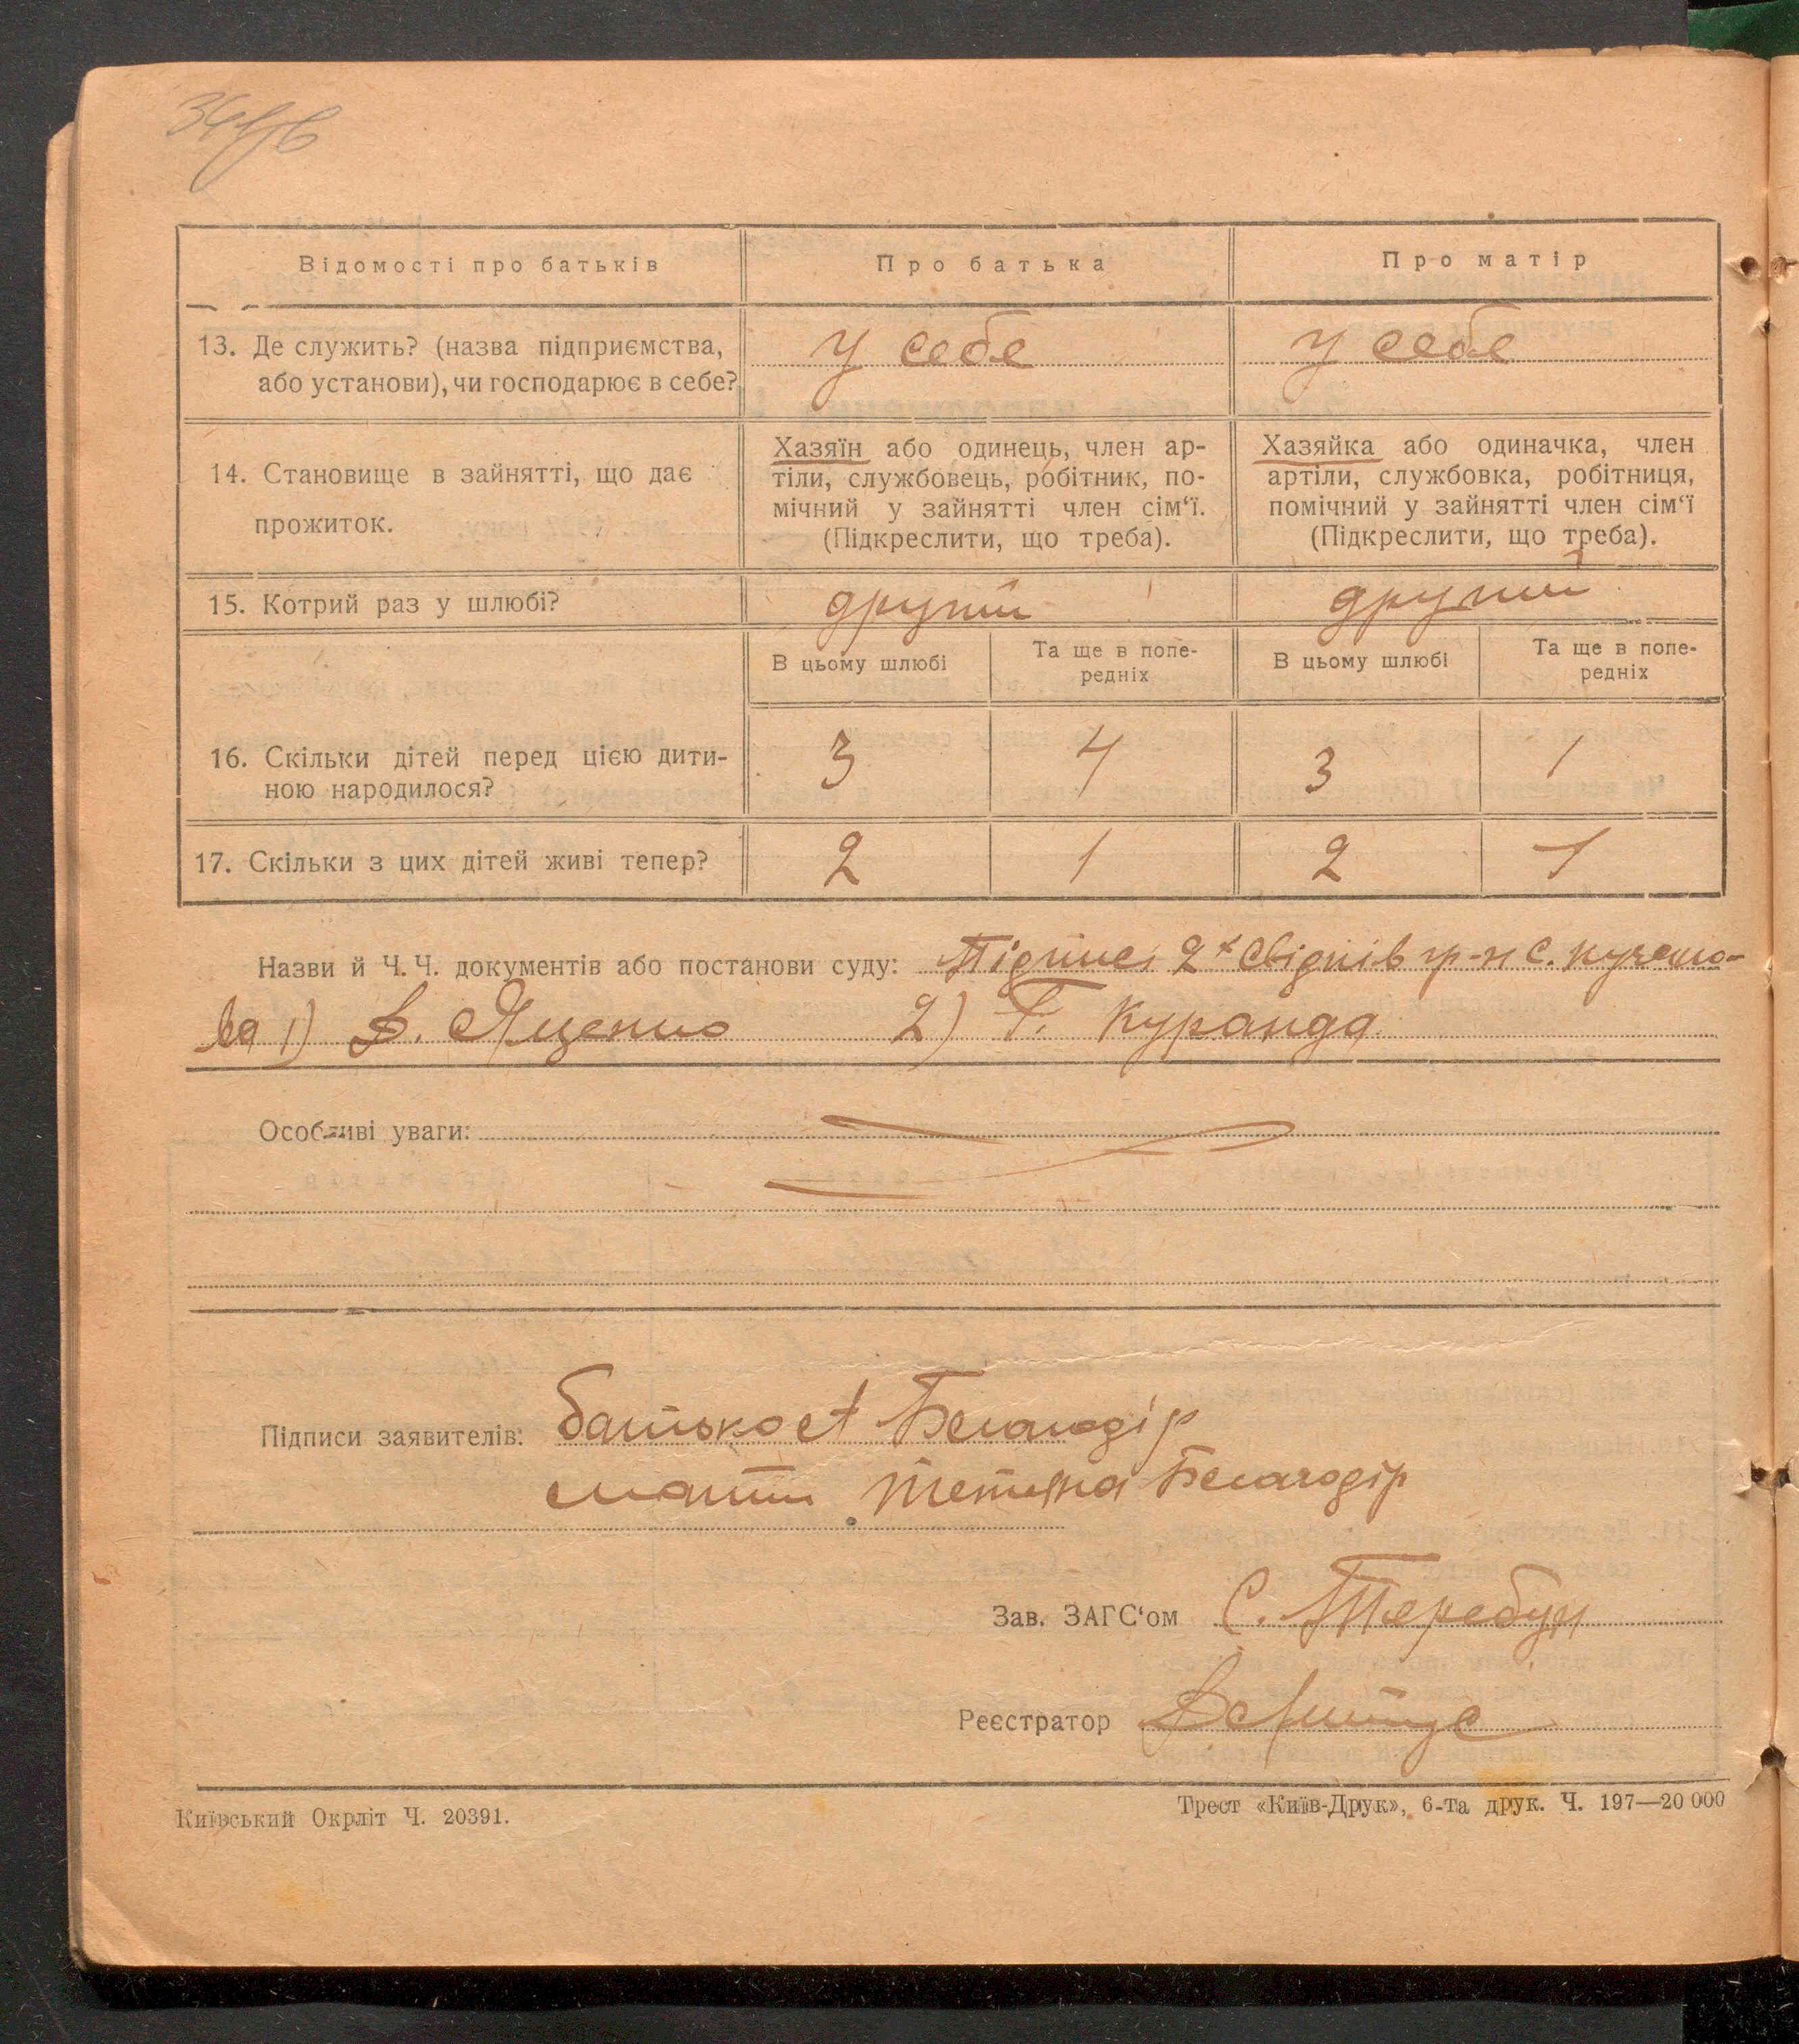 34зв
Відомості про батьків
Про батька
Про матір
13. Де служить? (назва підприємства,
або установи), чи господарює в себе?
у себе
у себе
14. Становище в зайнятті, що дає
прожиток.
Хазяїн або одинець, член ар-
тіли, службовець, робітник, по-
мічний у зайнятті член сім‘ї.
(Підкреслити, що треба).
Хазяйка або одиначка, член
артіли, службовка, робітниця,
помічний у зайнятті член сім‘ї
(Підкреслити, що треба).
15. Котрий раз у шлюбі?
другий
другий
В цьому шлюбі
Та ще в попе-
редніх
В цьому шлюбі
Та ще в попе-
редніх
16. Скільки дітей перед цією дити-
ною народилося?
3
4
3
1
17. Скільки з цих дітей живі тепер?
2
1
2
1
Назви й Ч. Ч. документів або постанови суду: Підписи 2х свідків гр-н с.
1) Яценко 2) Г. Куранда
Особливі уваги:
Підписи заявителів: батько Белагодір
мати Тетяна Белагодір
Зав. ЗАГС‘ом С. Теребун
Реєстратор
Київський Окрліт Ч. 20391.
Трест «Київ-Друк», 6-та друк. Ч. 197—20 000